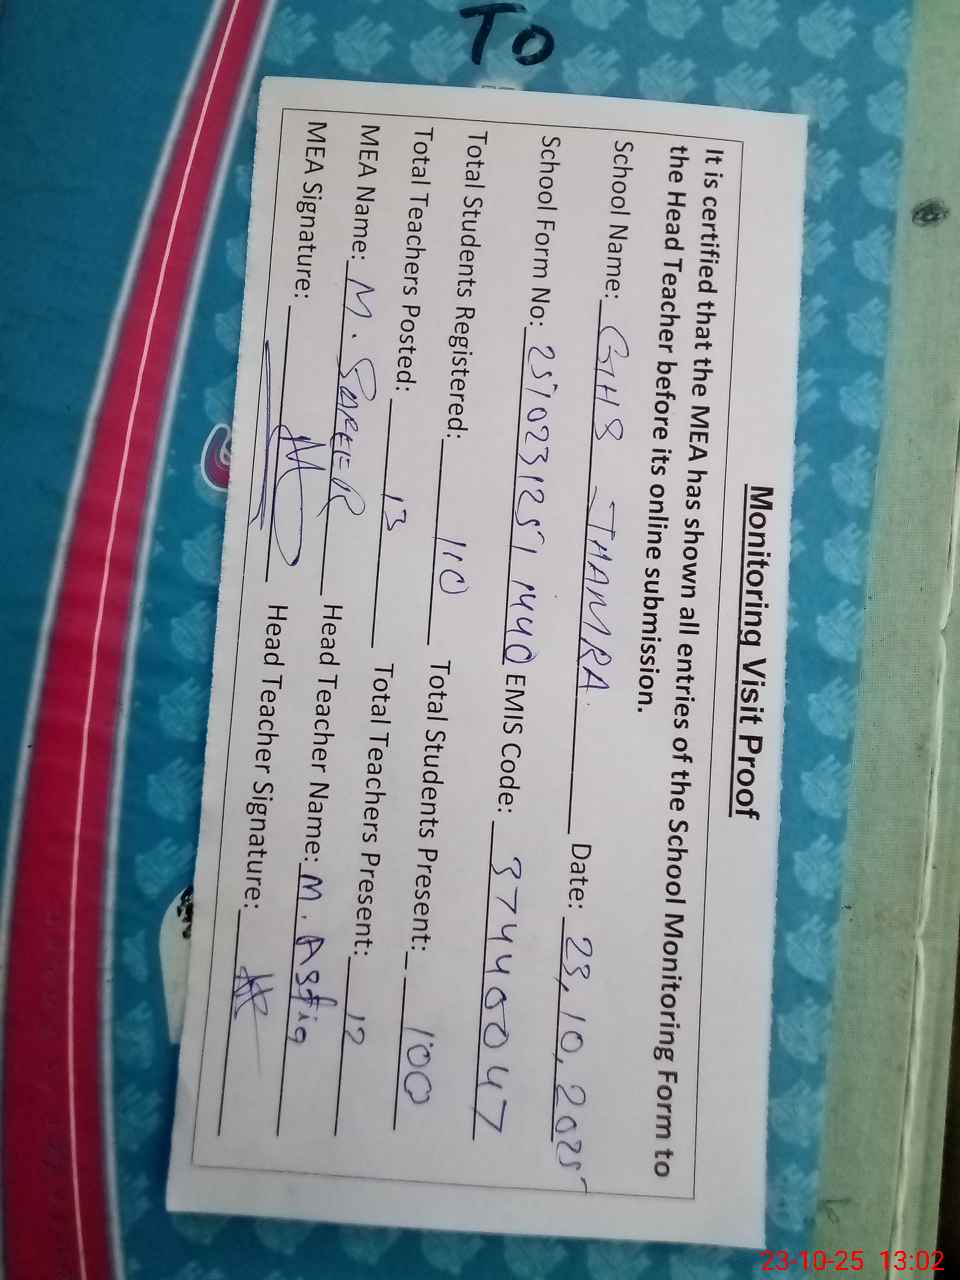 TO
Monitoring Visit Proof
It is certified that the MEA has shown all entries of the School Monitoring Form to
the Head Teacher before its online submission.
School Name: GHS THAMRA Date: 23,10,2025
School Form No: 2510231251440 EMIS Code: 37440047
Total Students Registered: 110 Total Students Present: 100
Total Teachers Posted: 13 Total Teachers Present: 12
MEA Name: M. Head Teacher Name: M.
MEA Signature: Head Teacher Signature:
23-10-25 13:02